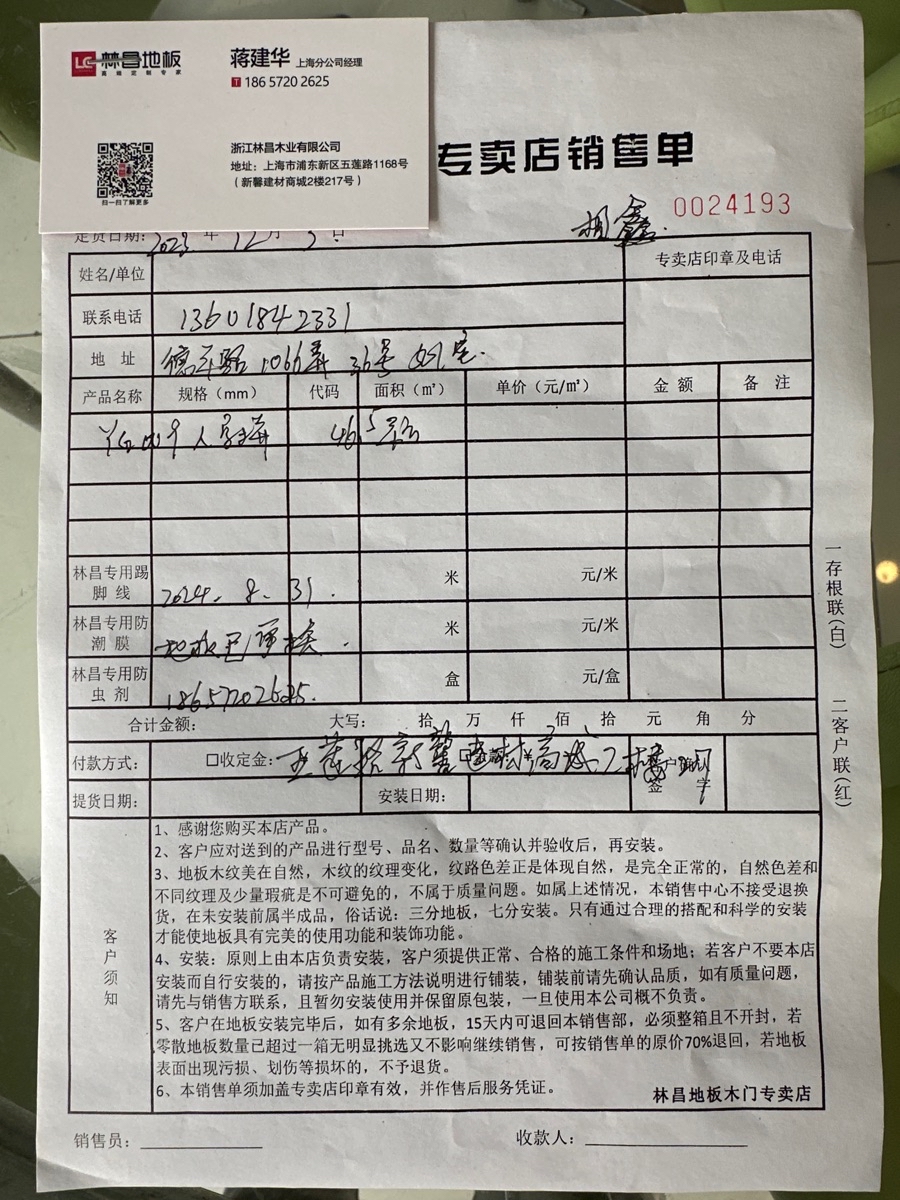 LC 林昌地板
高端定制专家
蒋建华 上海分公司经理
T 186 5720 2625
浙江林昌木业有限公司
地址：上海市浦东新区五莲路1168号
（新馨建材商城2楼217号）
扫一扫了解更多
专卖店销售单
0024193
定货日期：2023 年 12 月 3 日
姓名/单位
专卖店印章及电话
联系电话 13601842331
地 址 德平路1066弄 36号 室
产品名称 规格（mm） 代码 面积（㎡） 单价（元/㎡） 金 额 备 注
46.5
林昌专用踢脚线 米 元/米
2024. 8. 31.
林昌专用防潮膜 米 元/米
林昌专用防虫剂 盒 元/盒
18657202625.
合计金额： 大写： 拾 万 仟 佰 拾 元 角 分
付款方式： 口收定金： 五莲路新馨建材商城2楼 客户确认签字
提货日期： 安装日期：
客户须知
1、感谢您购买本店产品。
2、客户应对送到的产品进行型号、品名、数量等确认并验收后，再安装。
3、地板木纹美在自然，木纹的纹理变化，纹路色差正是体现自然，是完全正常的，自然色差和
不同纹理及少量瑕疵是不可避免的，不属于质量问题。如属上述情况，本销售中心不接受退换
货，在未安装前属半成品，俗话说：三分地板，七分安装。只有通过合理的搭配和科学的安装
才能使地板具有完美的使用功能和装饰功能。
4、安装：原则上由本店负责安装，客户须提供正常、合格的施工条件和场地；若客户不要本店
安装而自行安装的，请按产品施工方法说明进行铺装，铺装前请先确认品质，如有质量问题，
请先与销售方联系，且暂勿安装使用并保留原包装，一旦使用本公司概不负责。
5、客户在地板安装完毕后，如有多余地板，15天内可退回本销售部，必须整箱且不开封，若
零散地板数量已超过一箱无明显挑选又不影响继续销售，可按销售单的原价70%退回，若地板
表面出现污损、划伤等损坏的，不予退货。
6、本销售单须加盖专卖店印章有效，并作售后服务凭证。
林昌地板木门专卖店
一存根联(白)
二客户联(红)
销售员：
收款人：